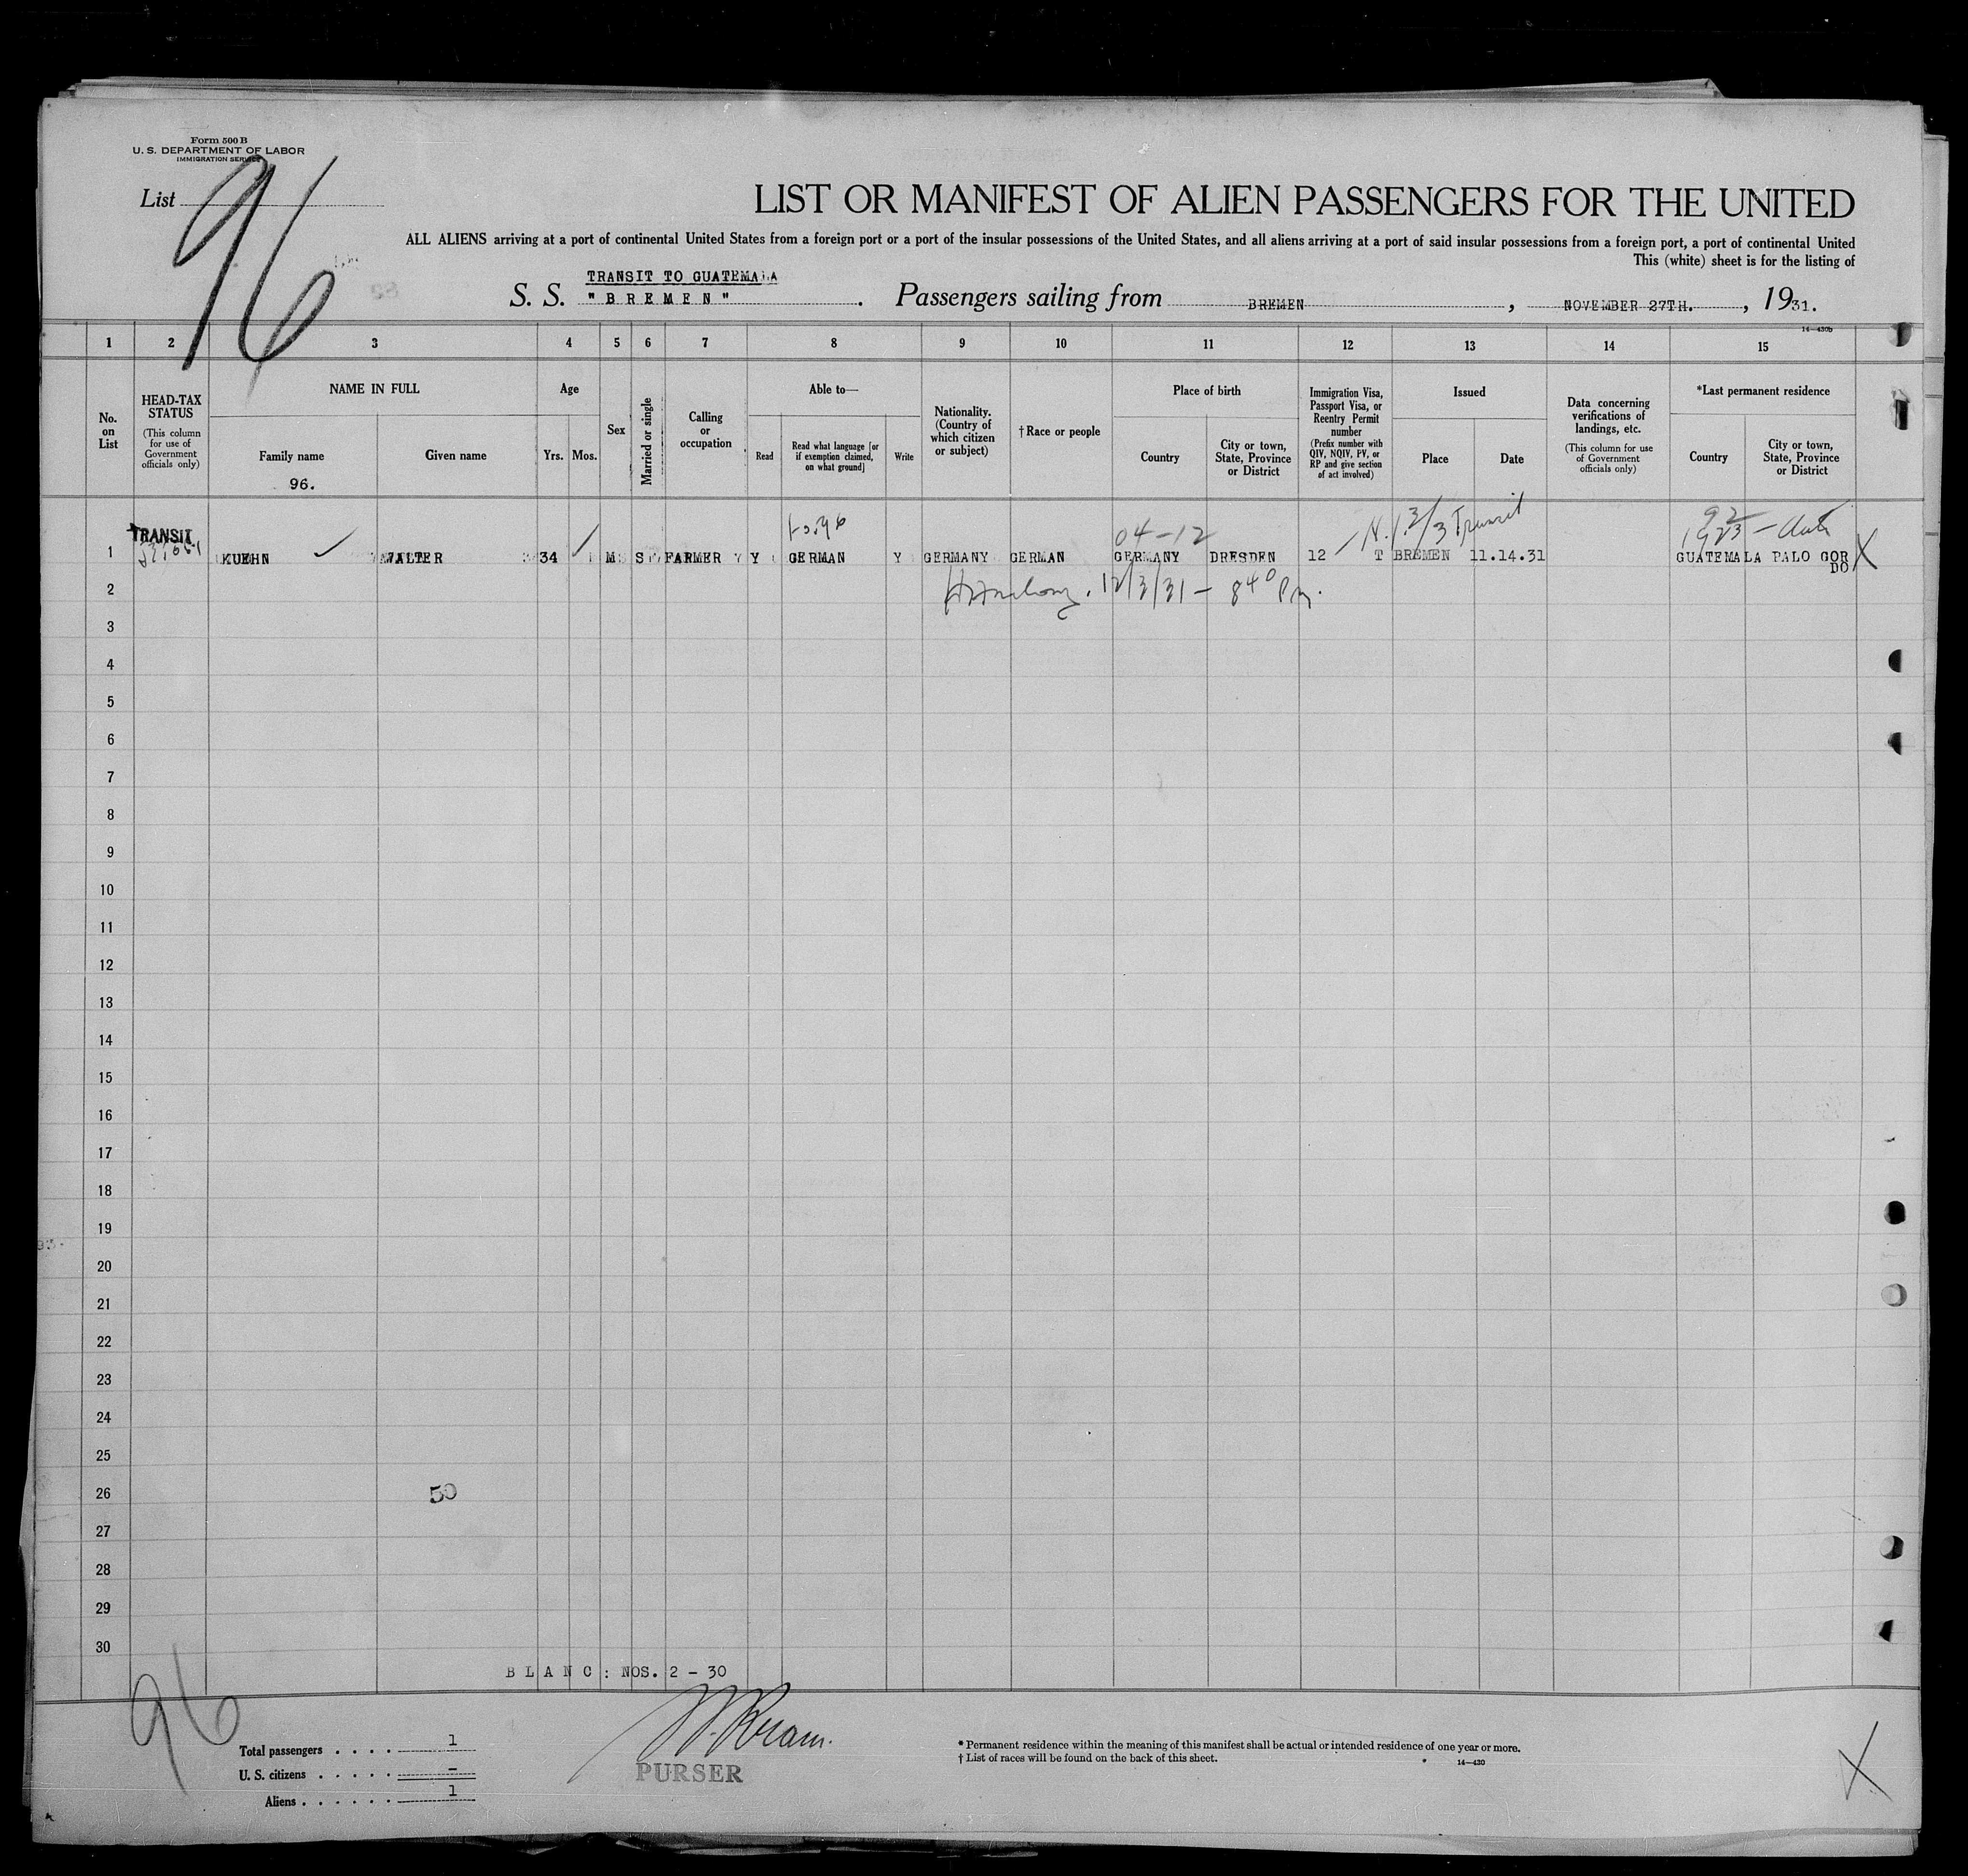 Form 500 B
U. S. DEPARTMENT OF LABOR
IMMIGRATION SERVICE
List 96
LIST OR MANIFEST OF ALIEN PASSENGERS FOR THE UNITED
ALL ALIENS arriving at a port of continental United States from a foreign port or a port of the insular possessions of the United States, and all aliens arriving at a port of said insular possessions from a foreign port, a port of continental United
This (white) sheet is for the listing of
TRANSIT TO GUATEMALA
S. S. "BREMEN". Passengers sailing from BREMEN, NOVEMBER 27TH., 1931.
14—430b
1 2 3 4 5 6 7 8 9 10 11 12 13 14 15
No. on List
HEAD-TAX STATUS
(This column for use of Government officials only)
NAME IN FULL
Family name
Given name
96.
Age
Yrs. Mos.
Sex
Married or single
Calling or occupation
Able to—
Read
Read what language [or if exemption claimed, on what ground]
Write
Nationality. (Country of which citizen or subject)
† Race or people
Place of birth
Country
City or town, State, Province or District
Immigration Visa, Passport Visa, or Reentry Permit number
(Prefix number with QIV, NQIV, PV, or RP and give section of act involved)
Issued
Place
Date
Data concerning verifications of landings, etc.
(This column for use of Government officials only)
*Last permanent residence
Country
City or town, State, Province or District
TRANSIT
04-12
3/3 Transit
92
1923 -
1 KUEHN WALTER 34 M S FARMER Y GERMAN Y GERMANY GERMAN GERMANY DRESDEN 12 T BREMEN 11.14.31 GUATEMALA PALO GOR
DO X
2 12/3/31 - 8 40 Pm.
3
4
5
6
7
8
9
10
11
12
13
14
15
16
17
18
19
20
21
22
23
24
25
26 50
27
28
29
30
BLANC: NOS. 2 - 30
96
PURSER
Total passengers . . . . 1
U. S. citizens . . . . . –
Aliens . . . . . . 1
* Permanent residence within the meaning of this manifest shall be actual or intended residence of one year or more.
† List of races will be found on the back of this sheet.
14—430
X